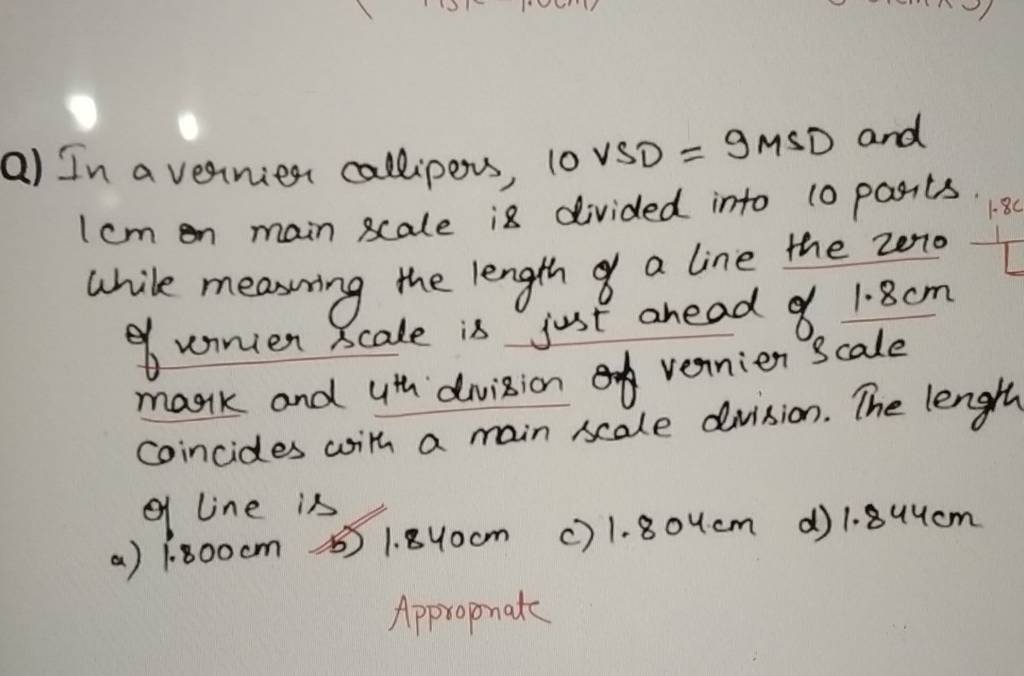 Q) In a vernier callipers, 10 VSD = 9MSD and
1cm on main scale is divided into 10 parts.
1.8c
While measuring the length of a line the zero
of vernier scale is just ahead of 1.8cm
mark and 4th division of vernier scale
coincides with a main scale division. The length
of line is
a) 1.800cm b) 1.840cm c) 1.804cm d) 1.844cm
Appropriate